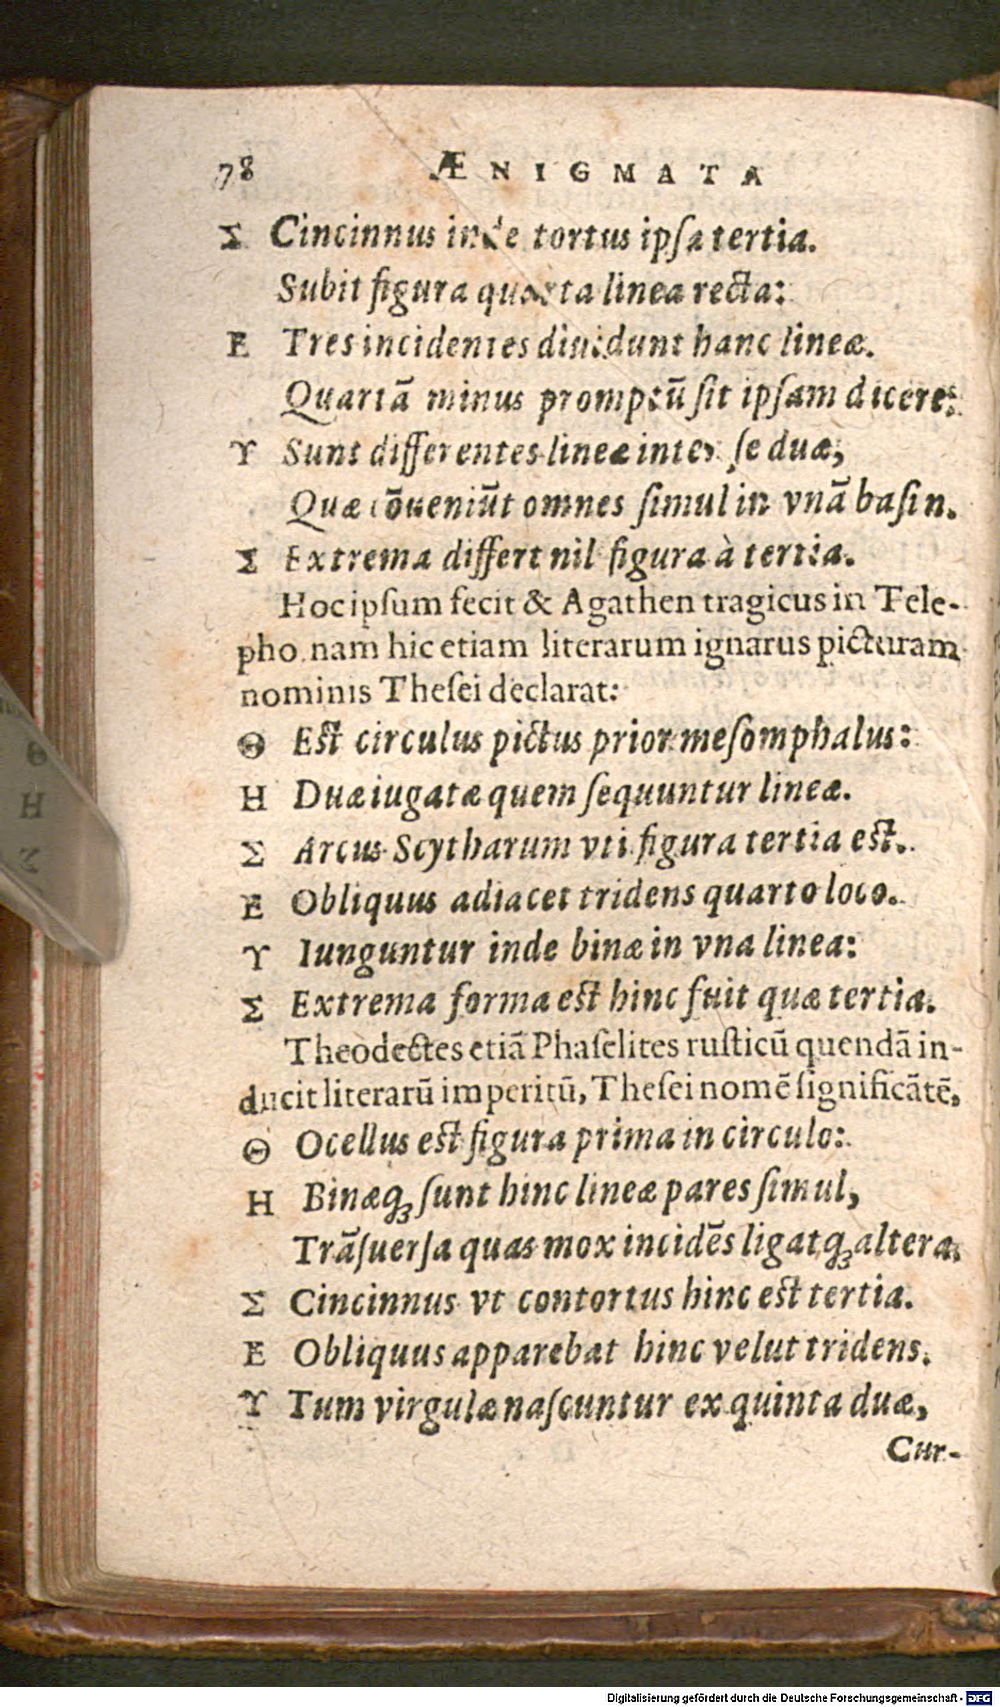 78 ÆNIGMATA
Σ Cincinnus inde tortus ipſa tertia.
Subit figura quarta linea recta:
E Tres incidentes diuidunt hanc lineæ.
Quartā minus promptū ſit ipſam dicere:
ϒ Sunt differentes lineæ inter ſe duæ,
Quæ cōueniūt omnes ſimul in vnā baſin.
Σ Extrema differt nil figura à tertia.
Hoc ipſum fecit & Agathen tragicus in Tele-
pho. nam hic etiam literarum ignarus picturam
nominis Theſei declarat:
Θ Eſt circulus pictus prior meſomphalus:
H Duæ iugatæ quem ſequuntur lineæ.
Σ Arcus Scytharum vti figura tertia eſt.
E Obliquus adiacet tridens quarto loco.
ϒ Iunguntur inde binæ in vna linea:
Σ Extrema forma eſt hinc fuit quæ tertia.
Theodectes etiā Phaſelites ruſticū quendā in-
ducit literarū imperitū, Theſei nomē ſignificātē,
Θ Ocellus eſt figura prima in circulo:
H Binæq; ſunt hinc lineæ pares ſimul,
Trāſuerſa quas mox incidēs ligatq; altera.
Σ Cincinnus vt contortus hinc eſt tertia.
E Obliquus apparebat hinc velut tridens.
ϒ Tum virgulæ naſcuntur ex quinta duæ,
Cur-
Digitalisierung gefördert durch die Deutsche Forschungsgemeinschaft - DFG